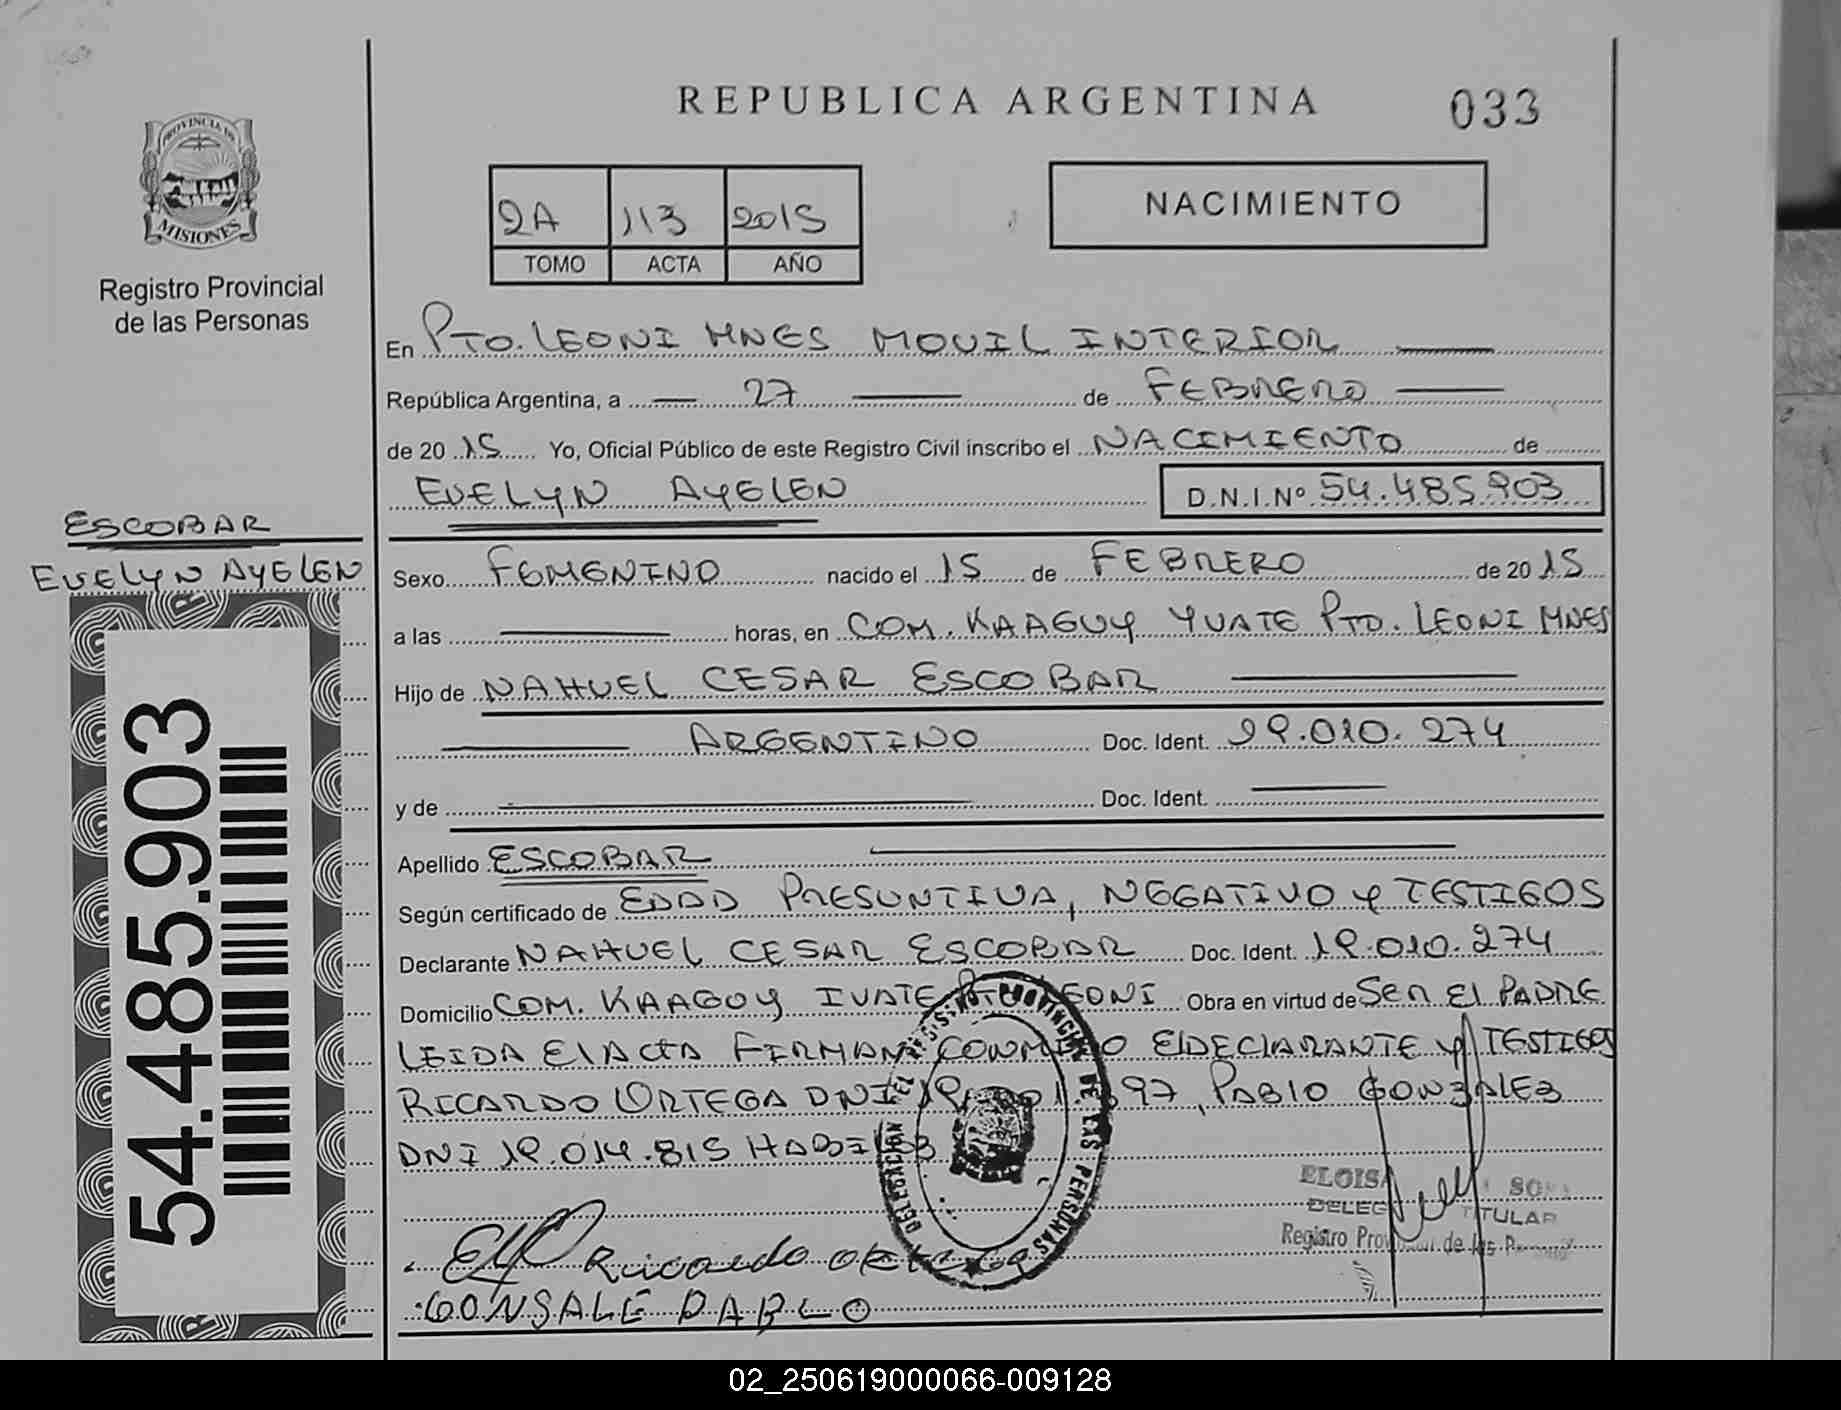 REPUBLICA ARGENTINA
033
PROVINCIA DE
MISIONES
Registro Provincial
de las Personas
2A 113 2015
TOMO ACTA AÑO
NACIMIENTO
En PTO. LEONI MNES MOVIL INTERIOR
República Argentina, a 27 de FEBRERO
de 20 15 Yo, Oficial Público de este Registro Civil inscribo el NACIMIENTO de
EVELYN AYELEN D.N.I.Nº 54.485.903
ESCOBAR
EVELYN AYELEN
54.485.903
Sexo FEMENINO nacido el 15 de FEBRERO de 20 15
a las horas, en COM. KAAGUY YVATE PTO. LEONI MNES
Hijo de NAHUEL CESAR ESCOBAR
ARGENTINO Doc. Ident. 19.010.274
y de Doc. Ident.
Apellido ESCOBAR
Según certificado de EDAD PRESUNTIVA, NEGATIVO Y TESTIGOS
Declarante NAHUEL CESAR ESCOBAR Doc. Ident. 19.010.274
Domicilio COM. KAAGUY IVATE PTO LEONI Obra en virtud de SER El PADRE
LEIDA El ACTA FIRMAN CONMIGO El DECLARANTE Y TESTIGOS
RICARDO ORTEGA DNI 97, PABLO GONZALEZ
DNI 19.014.815 HABILES
DELEGACION
PROVINCIAL DE LAS PERSONAS
ELOISA
TITULAR
Registro Provincial de las
Ricardo ortega
GONSALE PABLO
02_250619000066-009128